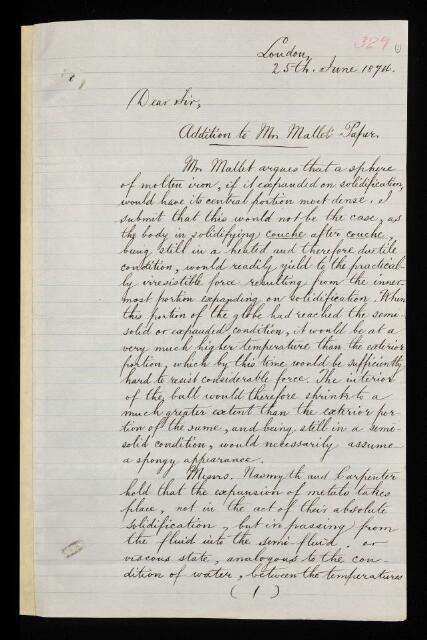 329
London,
25th. June 1874.
Dear Sir,
Addition to Mr. Mallet's Paper.
Mr. Mallet argues that a sphere
of molten iron, if it expanded on solidification,
would have its central portion most dense. I
submit that this would not be the case, as
the body in solidifying couche after couche,
being still in a heated and therefore ductile
condition, would readily yield to the practical-
ly irresistible force resulting from the inner-
most portion expanding on solidification. When
this portion of the globe had reached the semi-
solid or expanded condition, it would be at a
very much higher temperature than the exterior
portion, which by this time would be sufficiently
hard to resist considerable force. The interior
of the ball would therefore shrink to a
much greater extent than the exterior por-
tion of the same, and being still in a semi-
solid condition, would necessarily assume
a spongy appearance.
Messrs. Nasmyth and Carpenter
hold that the expansion of metals takes
place, not in the act of their absolute
solidification, but in passing from
the fluid into the semi-fluid or
viscous state, analogous to the con-
dition of water, between the temperatures
( 1 )